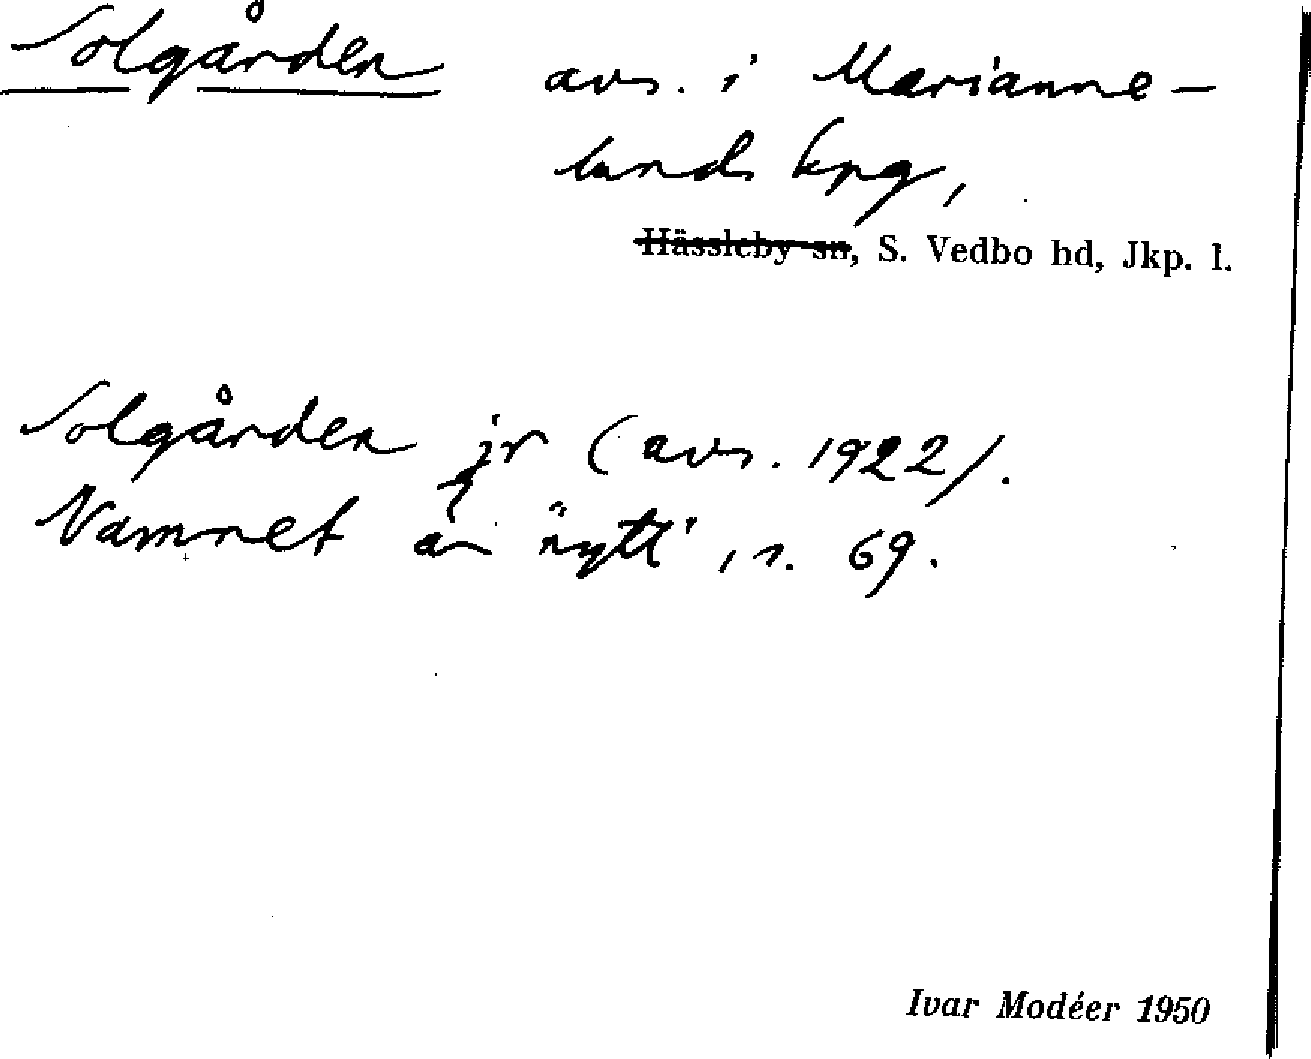 Solgården avs. i Marianne-
lunds kpg,
Hässleby sn, S. Vedbo hd, Jkp. l.
Solgården jr (avs. 1922).
Namnet är "nytt", s. 69.
Ivar Modéer 1950